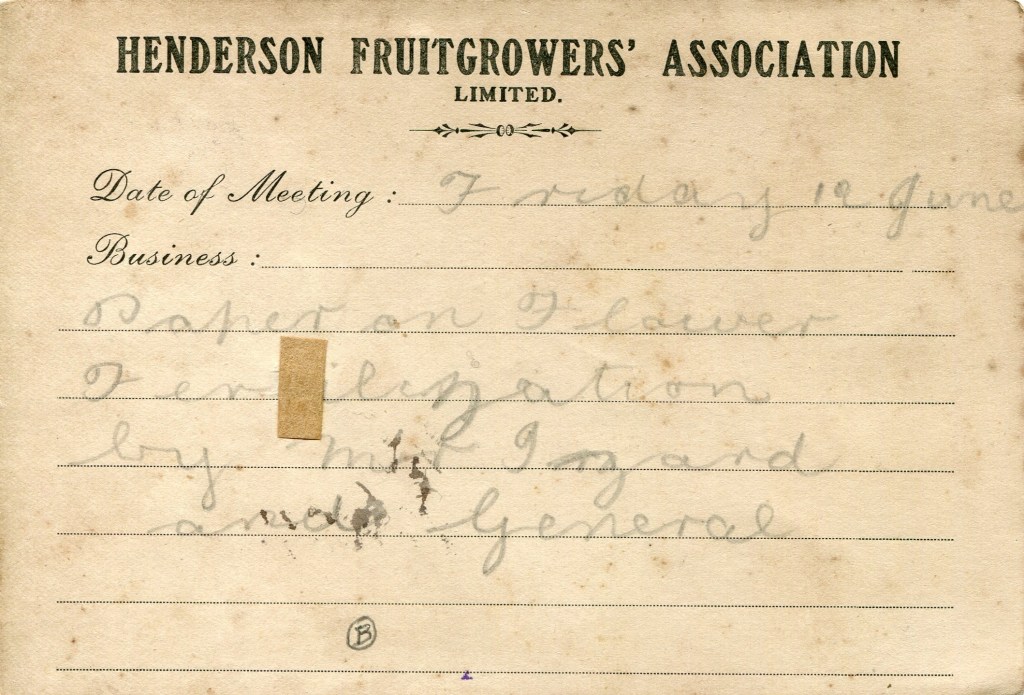 HENDERSON FRUITGROWERS' ASSOCIATION
LIMITED.
Date of Meeting : Friday 19 June
Business :
Paper on Flower
Fertilization
by Mr Izard
and General
B